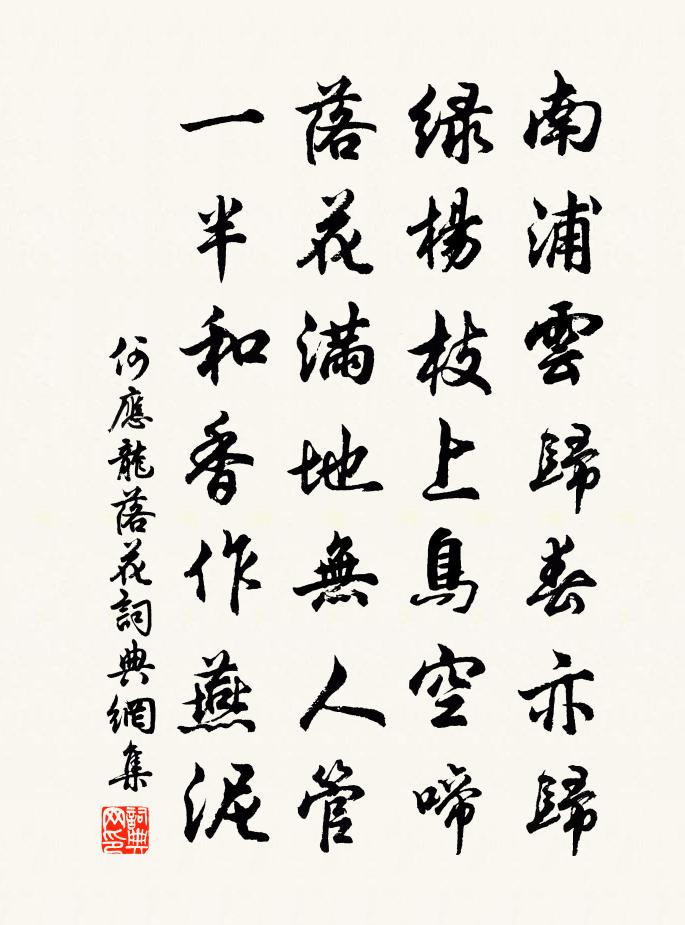 南浦雲歸春亦歸
緑楊枝上鳥空啼
落花滿地無人管
一半和香作燕泥
何應龍落花詞典網集
詞典
网印